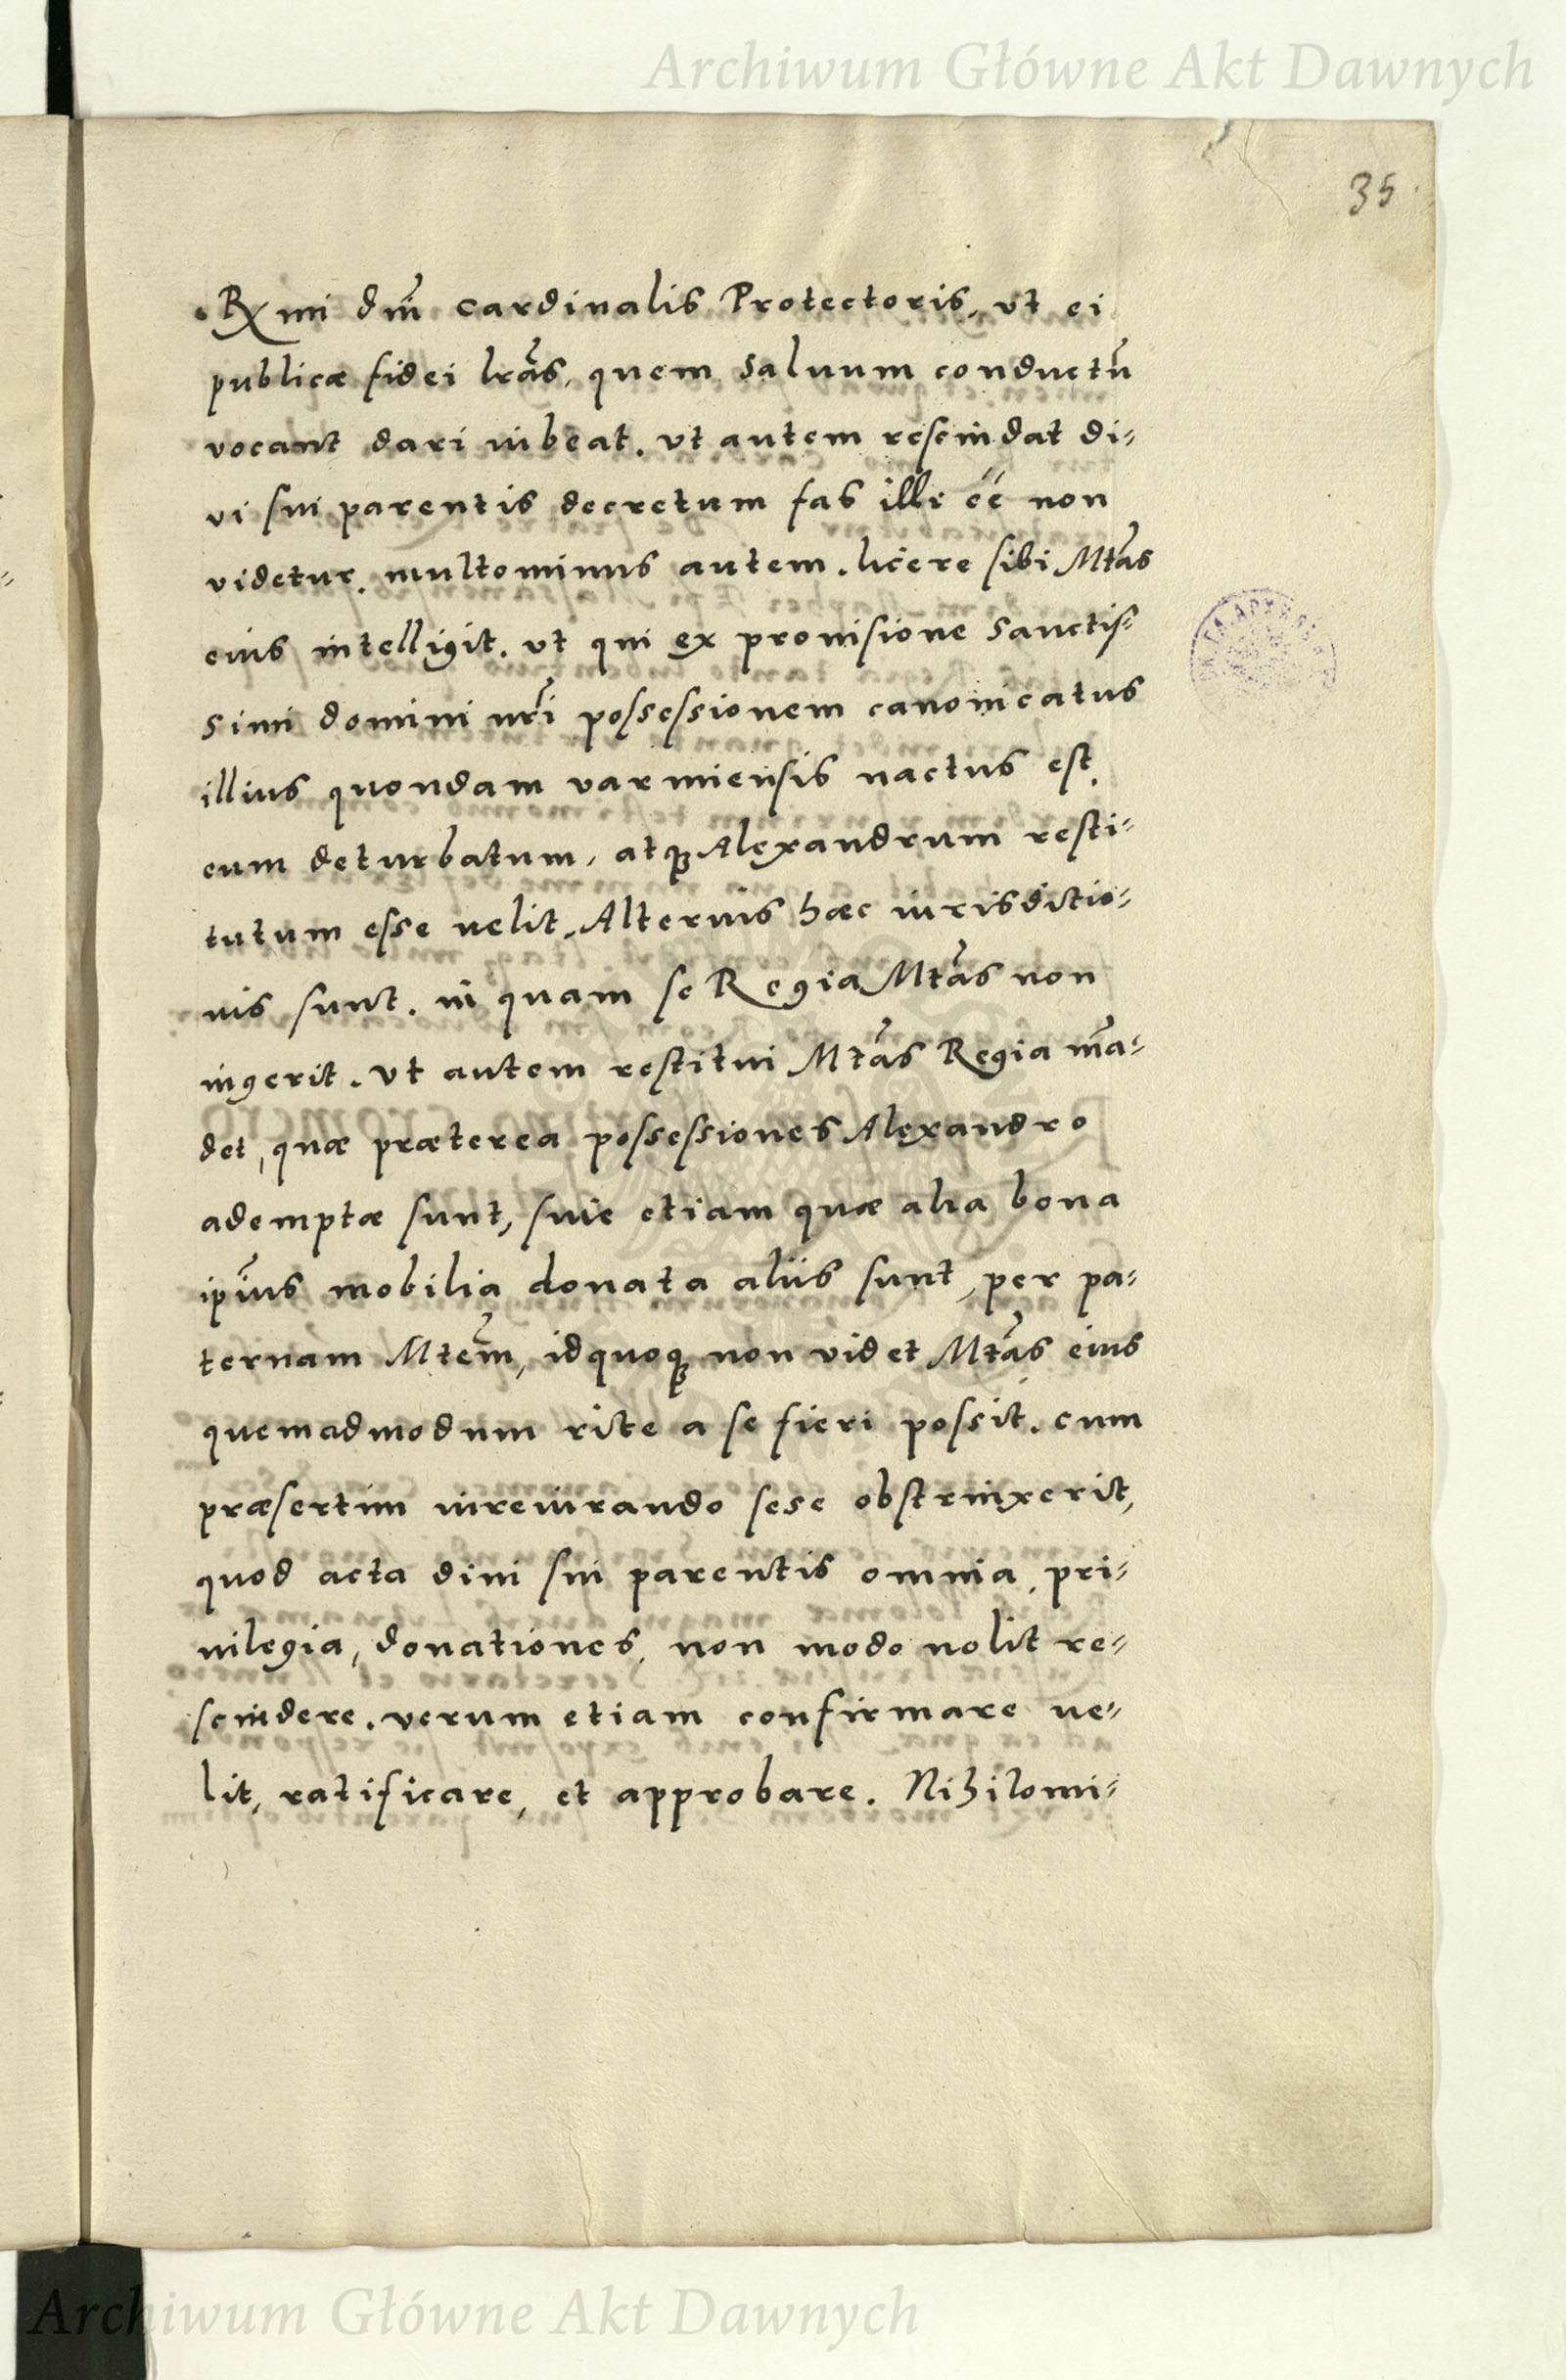 Archiwum Główne Akt Dawnych
35
Rx mi dni cardinalis Protectoris, vt ei
publicæ fidei lras, quem saluum conductu
vocant dari iubeat. vt autem rescindat di-
vi sui parentis decretum fas illi ee non
videtur. multominus autem. licere sibi Mtas
eius intelligit. vt qui ex prouisione sanctis-
simi domini nri possessionem canonicatus
illius quondam varmiensis nactus est,
eum deturbatum, atq Alexandrum resti-
tutum esse uelit. Alterius hæc iurisdictio-
nis sunt. in quam se Regia Mtas non
ingerit. vt autem restitui Mtas Regia ma-
det, quæ præterea possessiones Alexandro
ademptæ sunt, siue etiam quæ alia bona
ipius mobilia donata aliis sunt, per pa-
ternam Mtem, idquoq non videt Mtas eius
quemadmodum rite a se fieri possit. cum
præsertim iureiurando sese obstrinxerit,
quod acta diui sui parentis omnia, pri-
uilegia, donationes, non modo nolit re-
scindere. verum etiam confirmare ue-
lit, ratificare, et approbare. Nihilomi-
Archiwum Główne Akt Dawnych